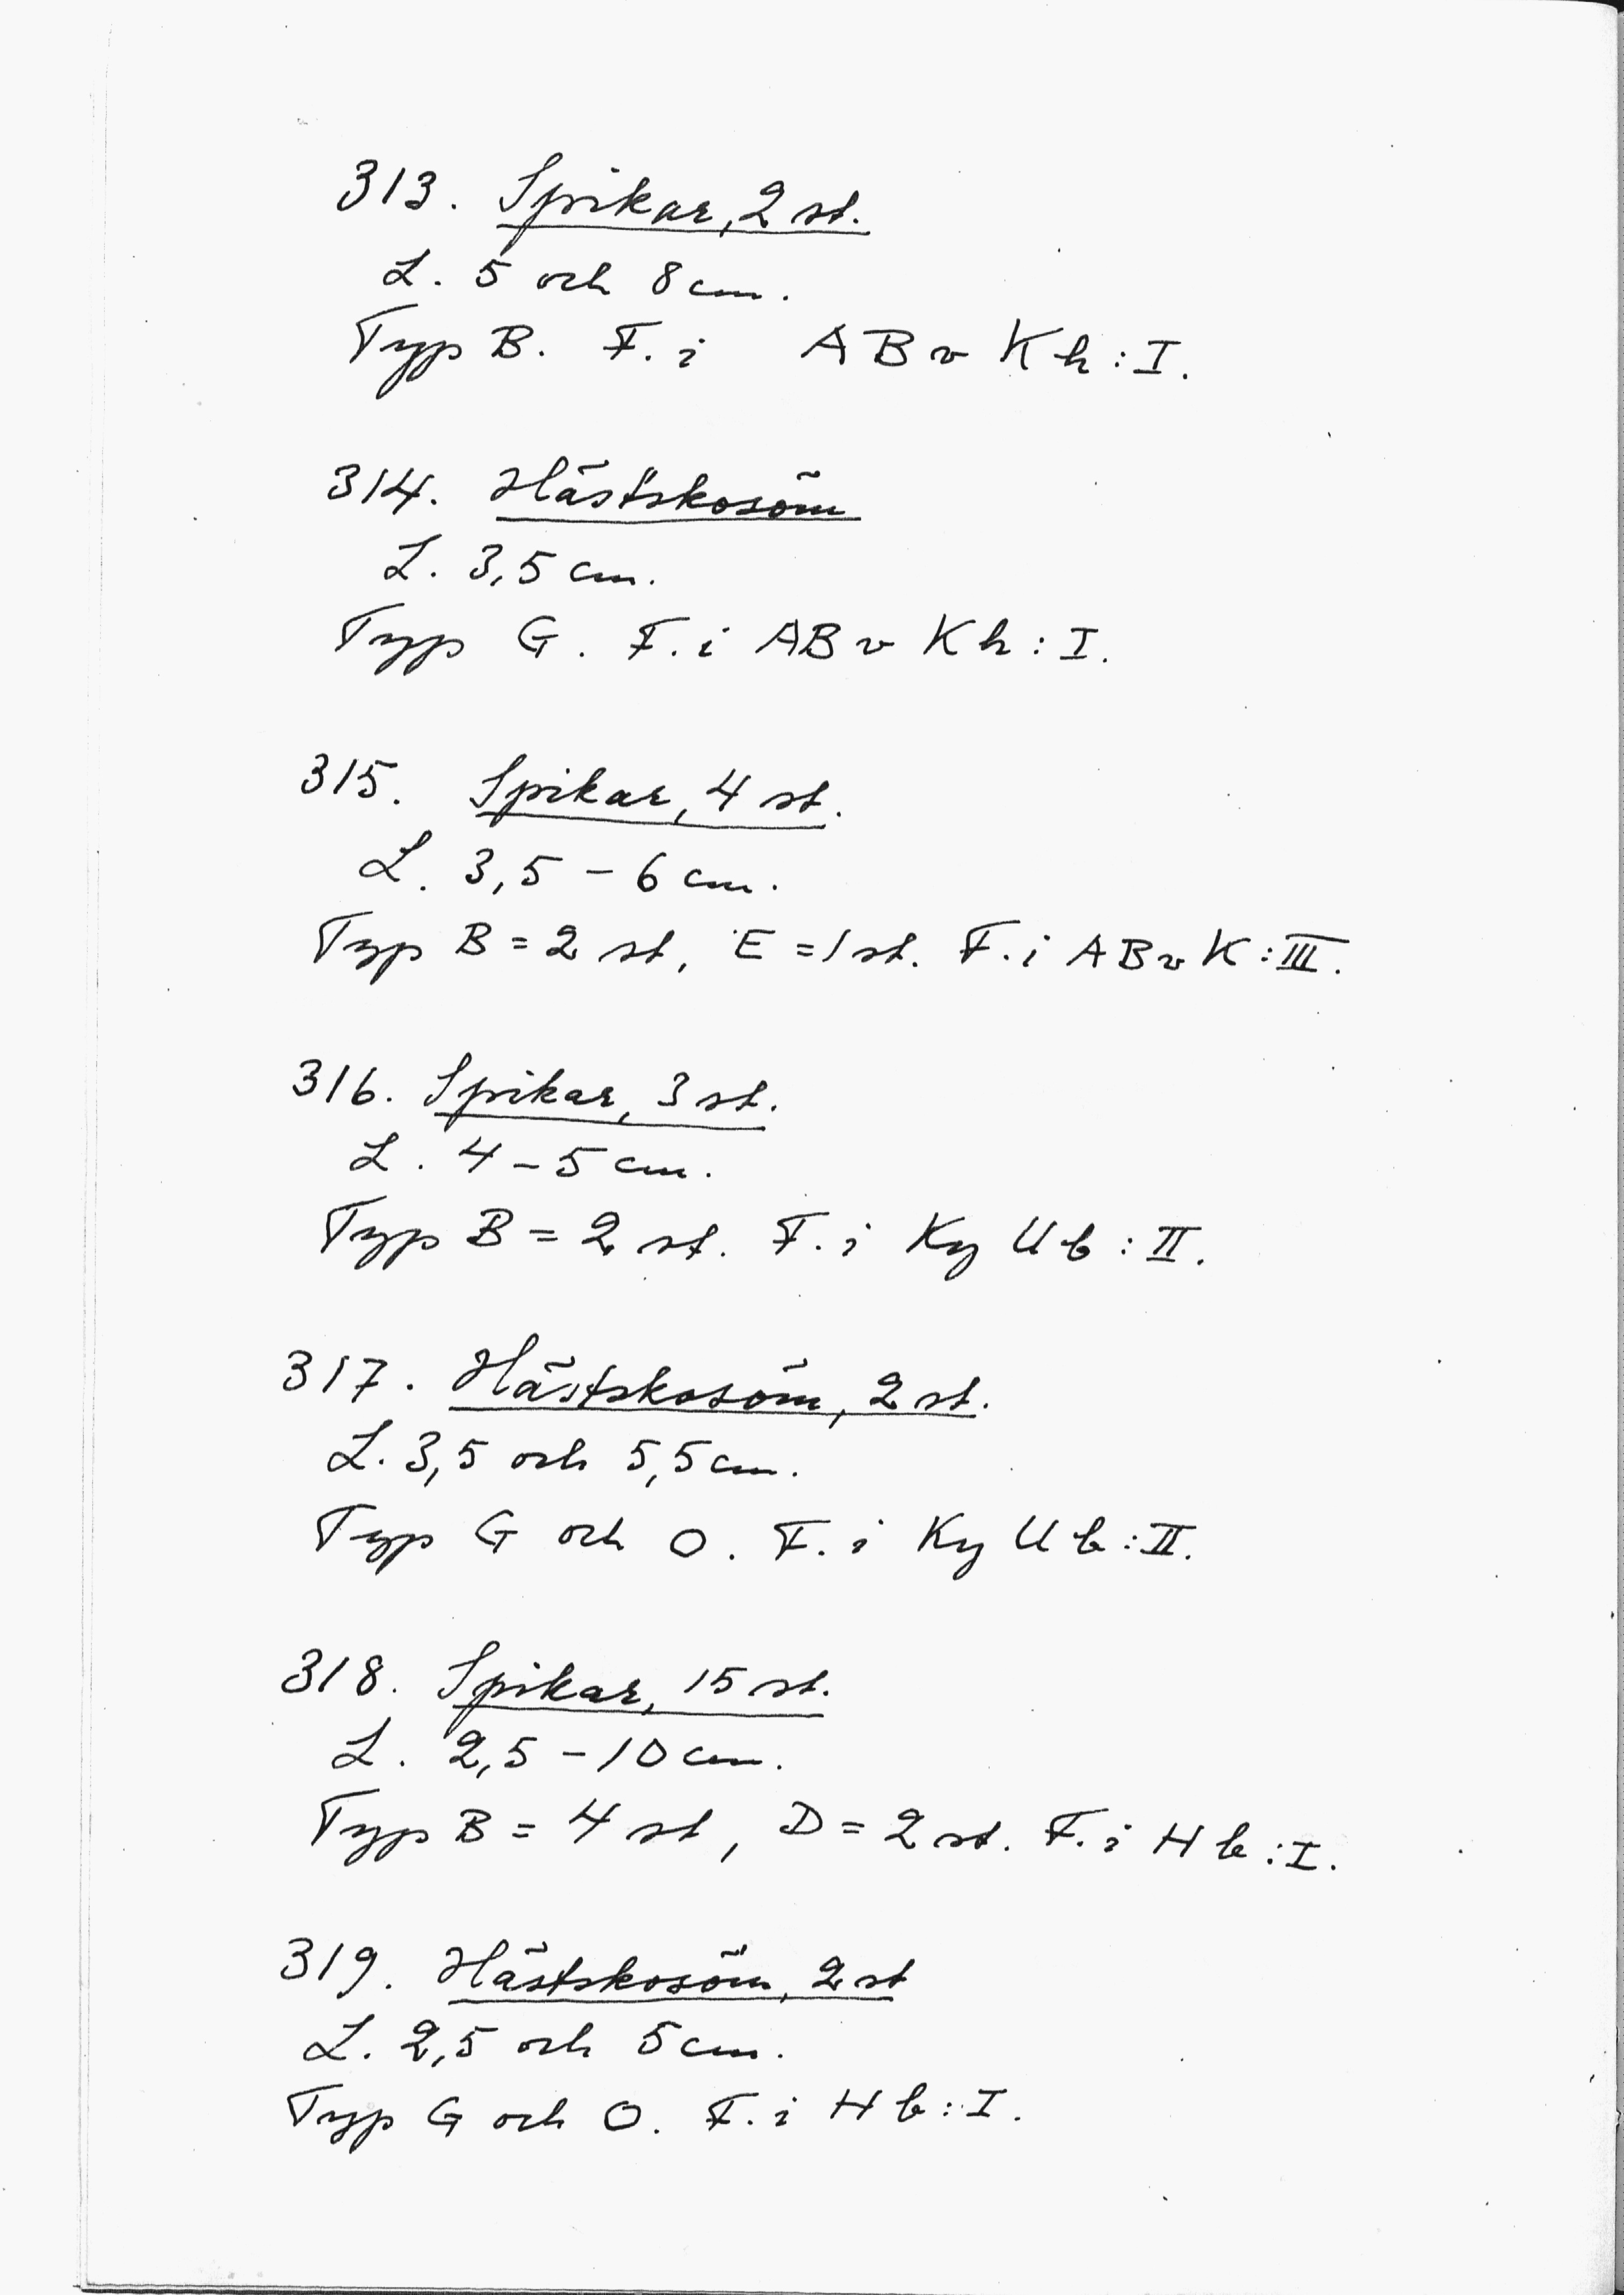 313. Spikar, 2 st.
L. 5 och 8 cm.
Typ B. F. i ABv Kh : I.
314. Hästskosöm
L. 3,5 cm.
Typ G. F. i ABv Kh : I.
315. Spikar, 4 st.
L. 3,5 - 6 cm.
Typ B = 2 st, E = 1 st. F. i ABv K : III.
316. Spikar, 3 st.
L. 4 - 5 cm.
Typ B = 2 st. F. i Ky Ub : II.
317. Hästskosöm, 2 st.
L. 3,5 och 5,5 cm.
Typ G och O. F. i Ky Ub : II.
318. Spikar, 15 st.
L. 2,5 - 10 cm.
Typ B = 4 st, D = 2 st. F. i Hb : I.
319. Hästskosöm, 2 st
L. 2,5 och 5 cm.
Typ G och O. F. i Hb : I.